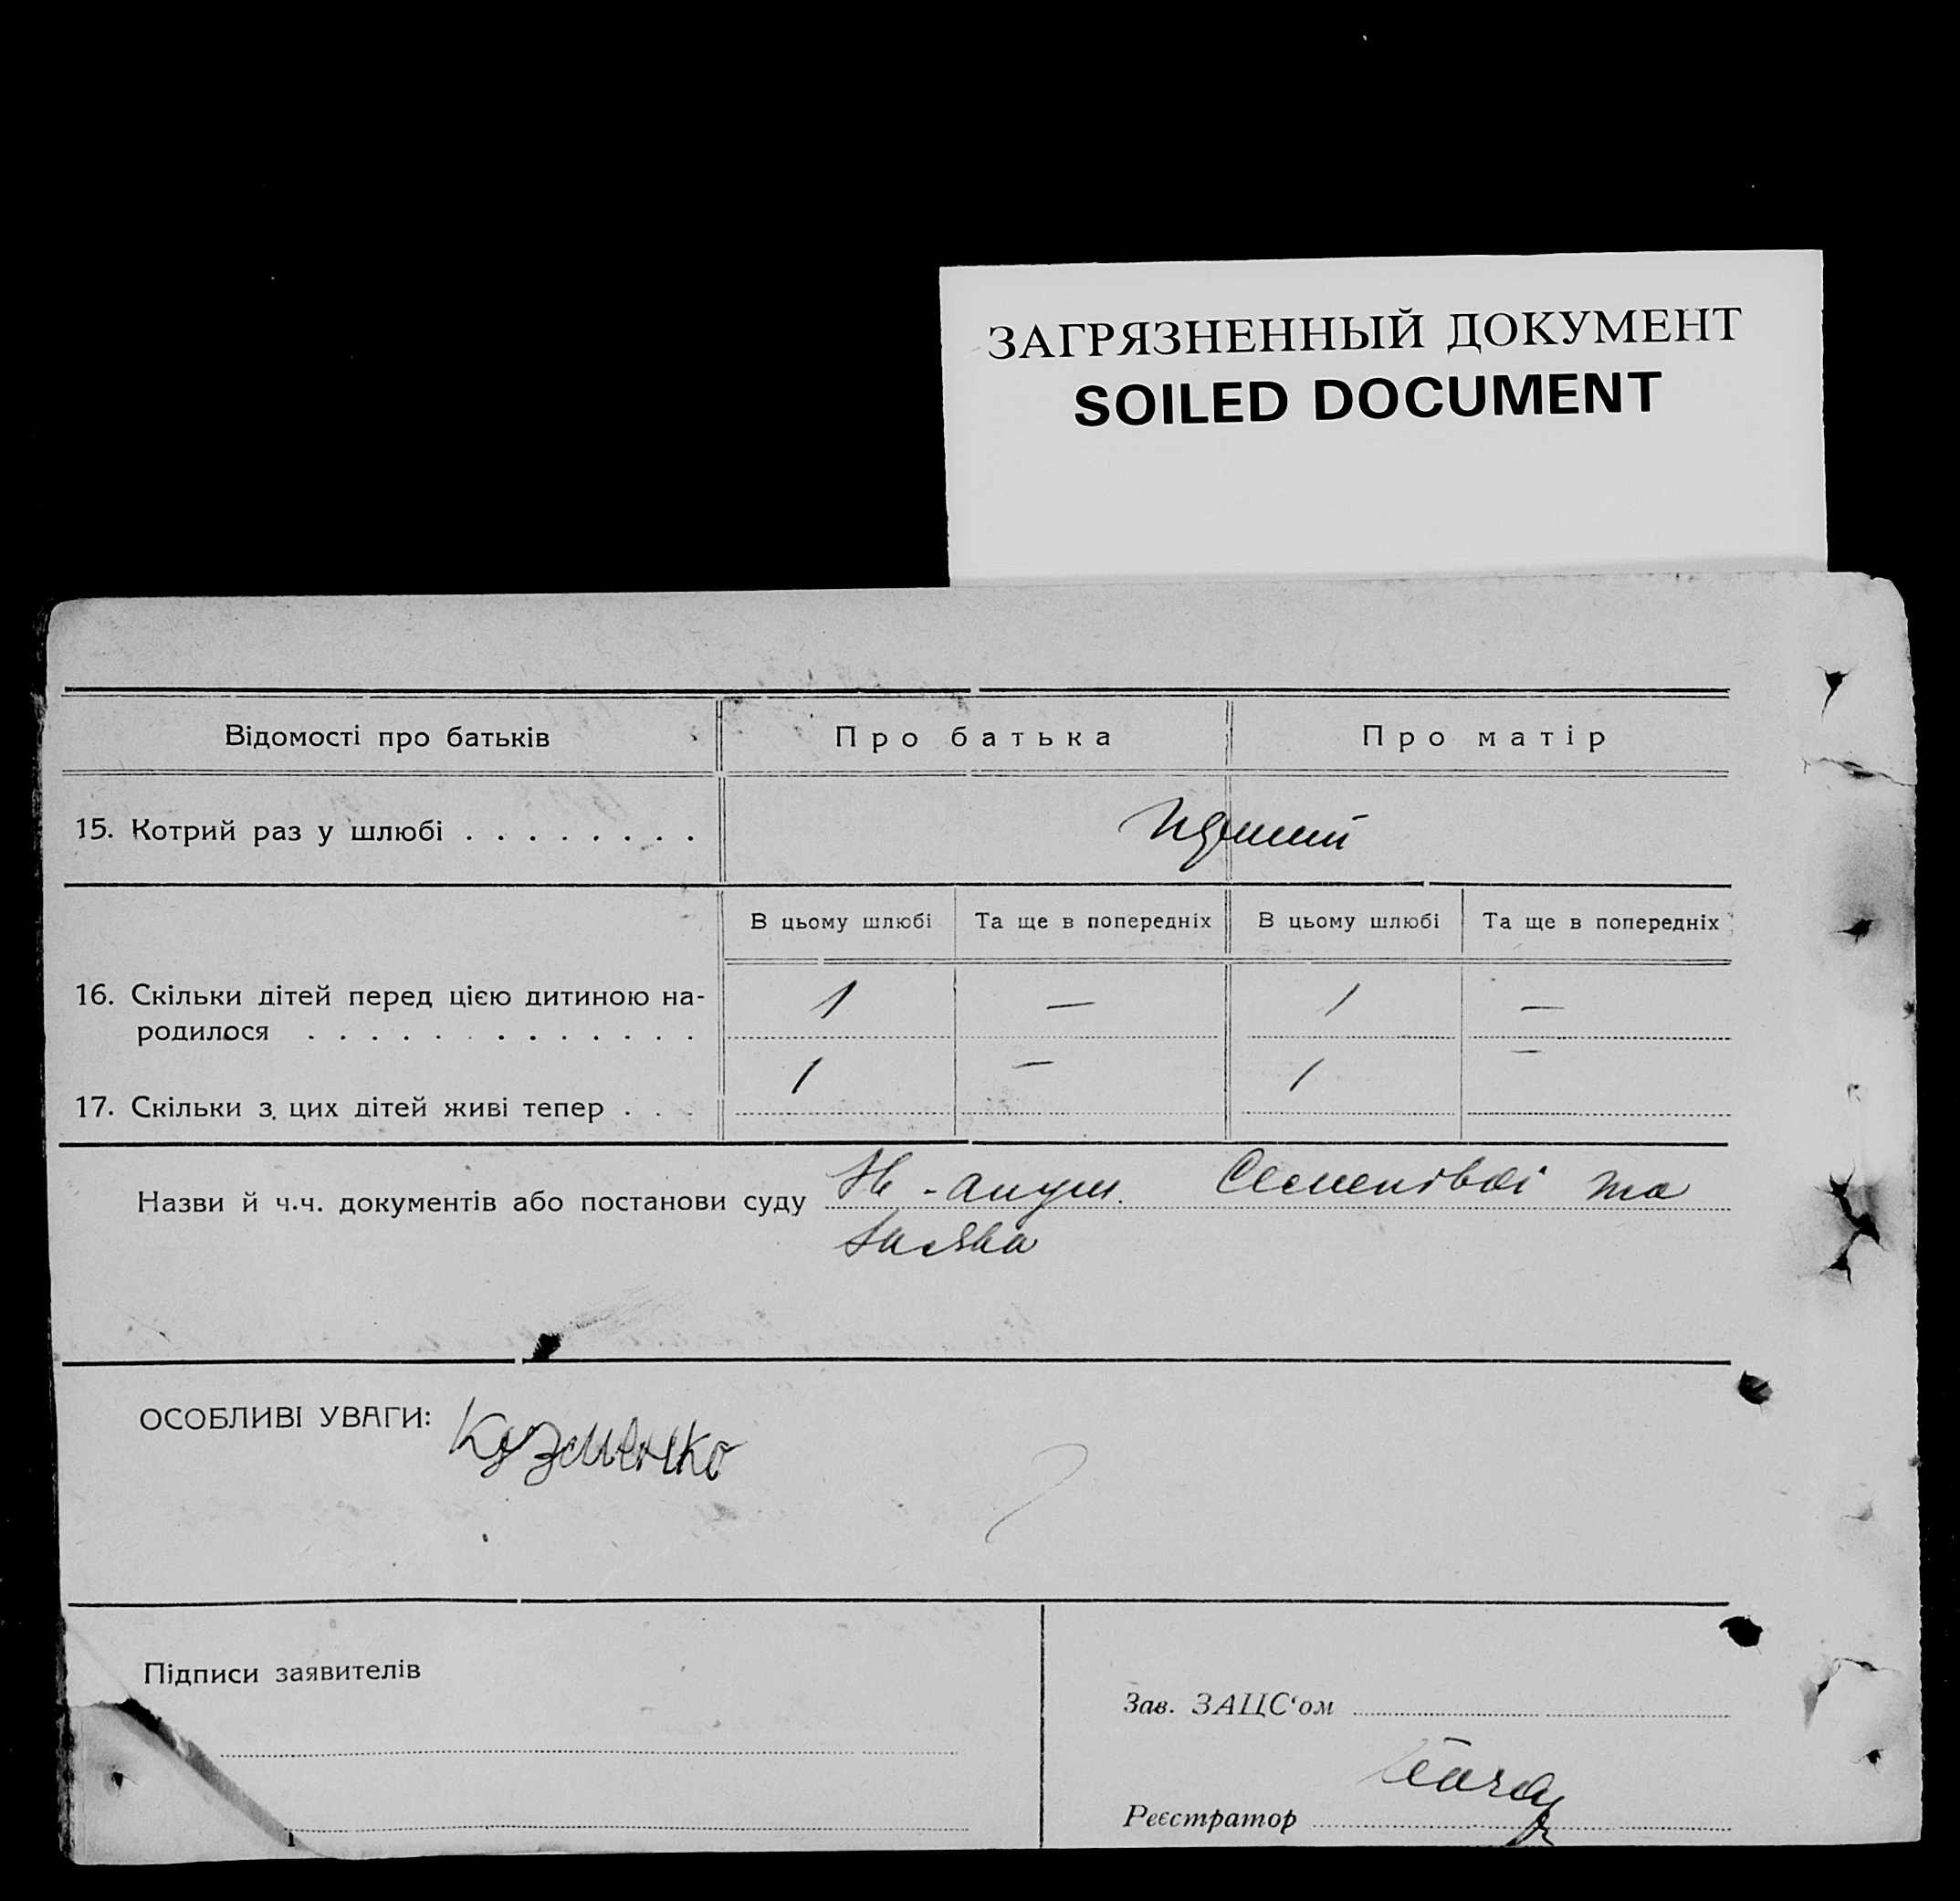 ЗАГРЯЗНЕННЫЙ ДОКУМЕНТ
SOILED DOCUMENT
Відомості про батьків Про батька Про матір
15. Котрий раз у шлюбі . . . . . . . .
В цьому шлюбі Та ще в попередніх В цьому шлюбі Та ще в попередніх
16. Скільки дітей перед цією дитиною на- 1 — 1 —
родилося . . . . . . . . . . . . .
17. Скільки з цих дітей живі тепер . . . 1 — 1 —
Назви й ч.ч. документів або постанови суду та
ОСОБЛИВІ УВАГИ: Кузменко
Підписи заявителів
Зав. ЗАЦС‘ом
Реєстратор